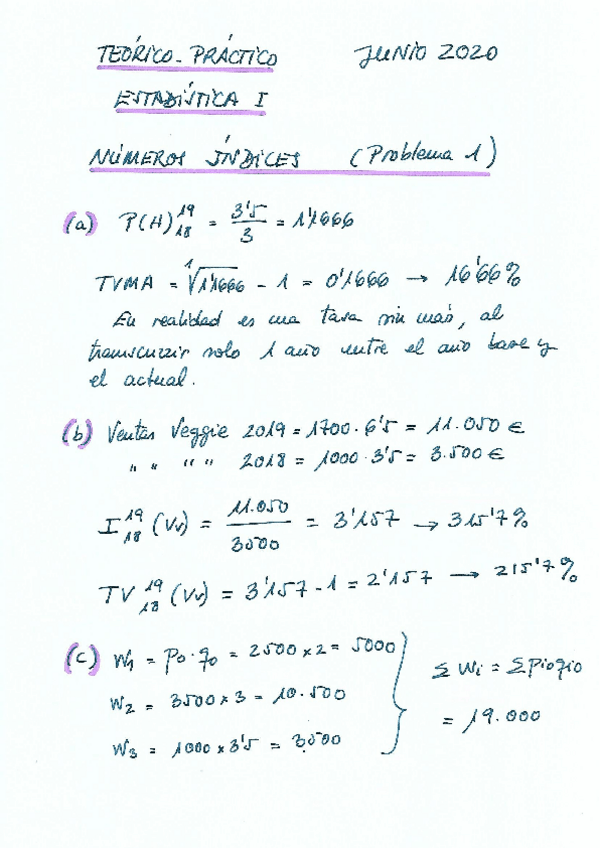 TEÓRICO-PRÁCTICO JUNIO 2020
ESTADÍSTICA I
NÚMEROS ÍNDICES (Problema 1)
(a) P(H)¹⁹₁₈ = 3'5/3 = 1'1666
TVMA = ¹√1'1666 - 1 = 0'1666 → 16'66%
En realidad es una tasa sin más, al
transcurrir solo 1 año entre el año base y
el actual.
(b) Ventas Veggie 2019 = 1700 · 6'5 = 11.050 €
" " " " 2018 = 1000 · 3'5 = 3.500 €
I¹⁹₁₈ (Vv) = 11.050/3500 = 3'157 → 315'7%
TV¹⁹₁₈ (Vv) = 3'157 - 1 = 2'157 → 215'7%
(c) W₁ = p₀ · q₀ = 2500 x 2 = 5000
W₂ = 3500 x 3 = 10.500
W₃ = 1000 x 3'5 = 3.500
Σ Wi = Σ pio qio
= 19.000